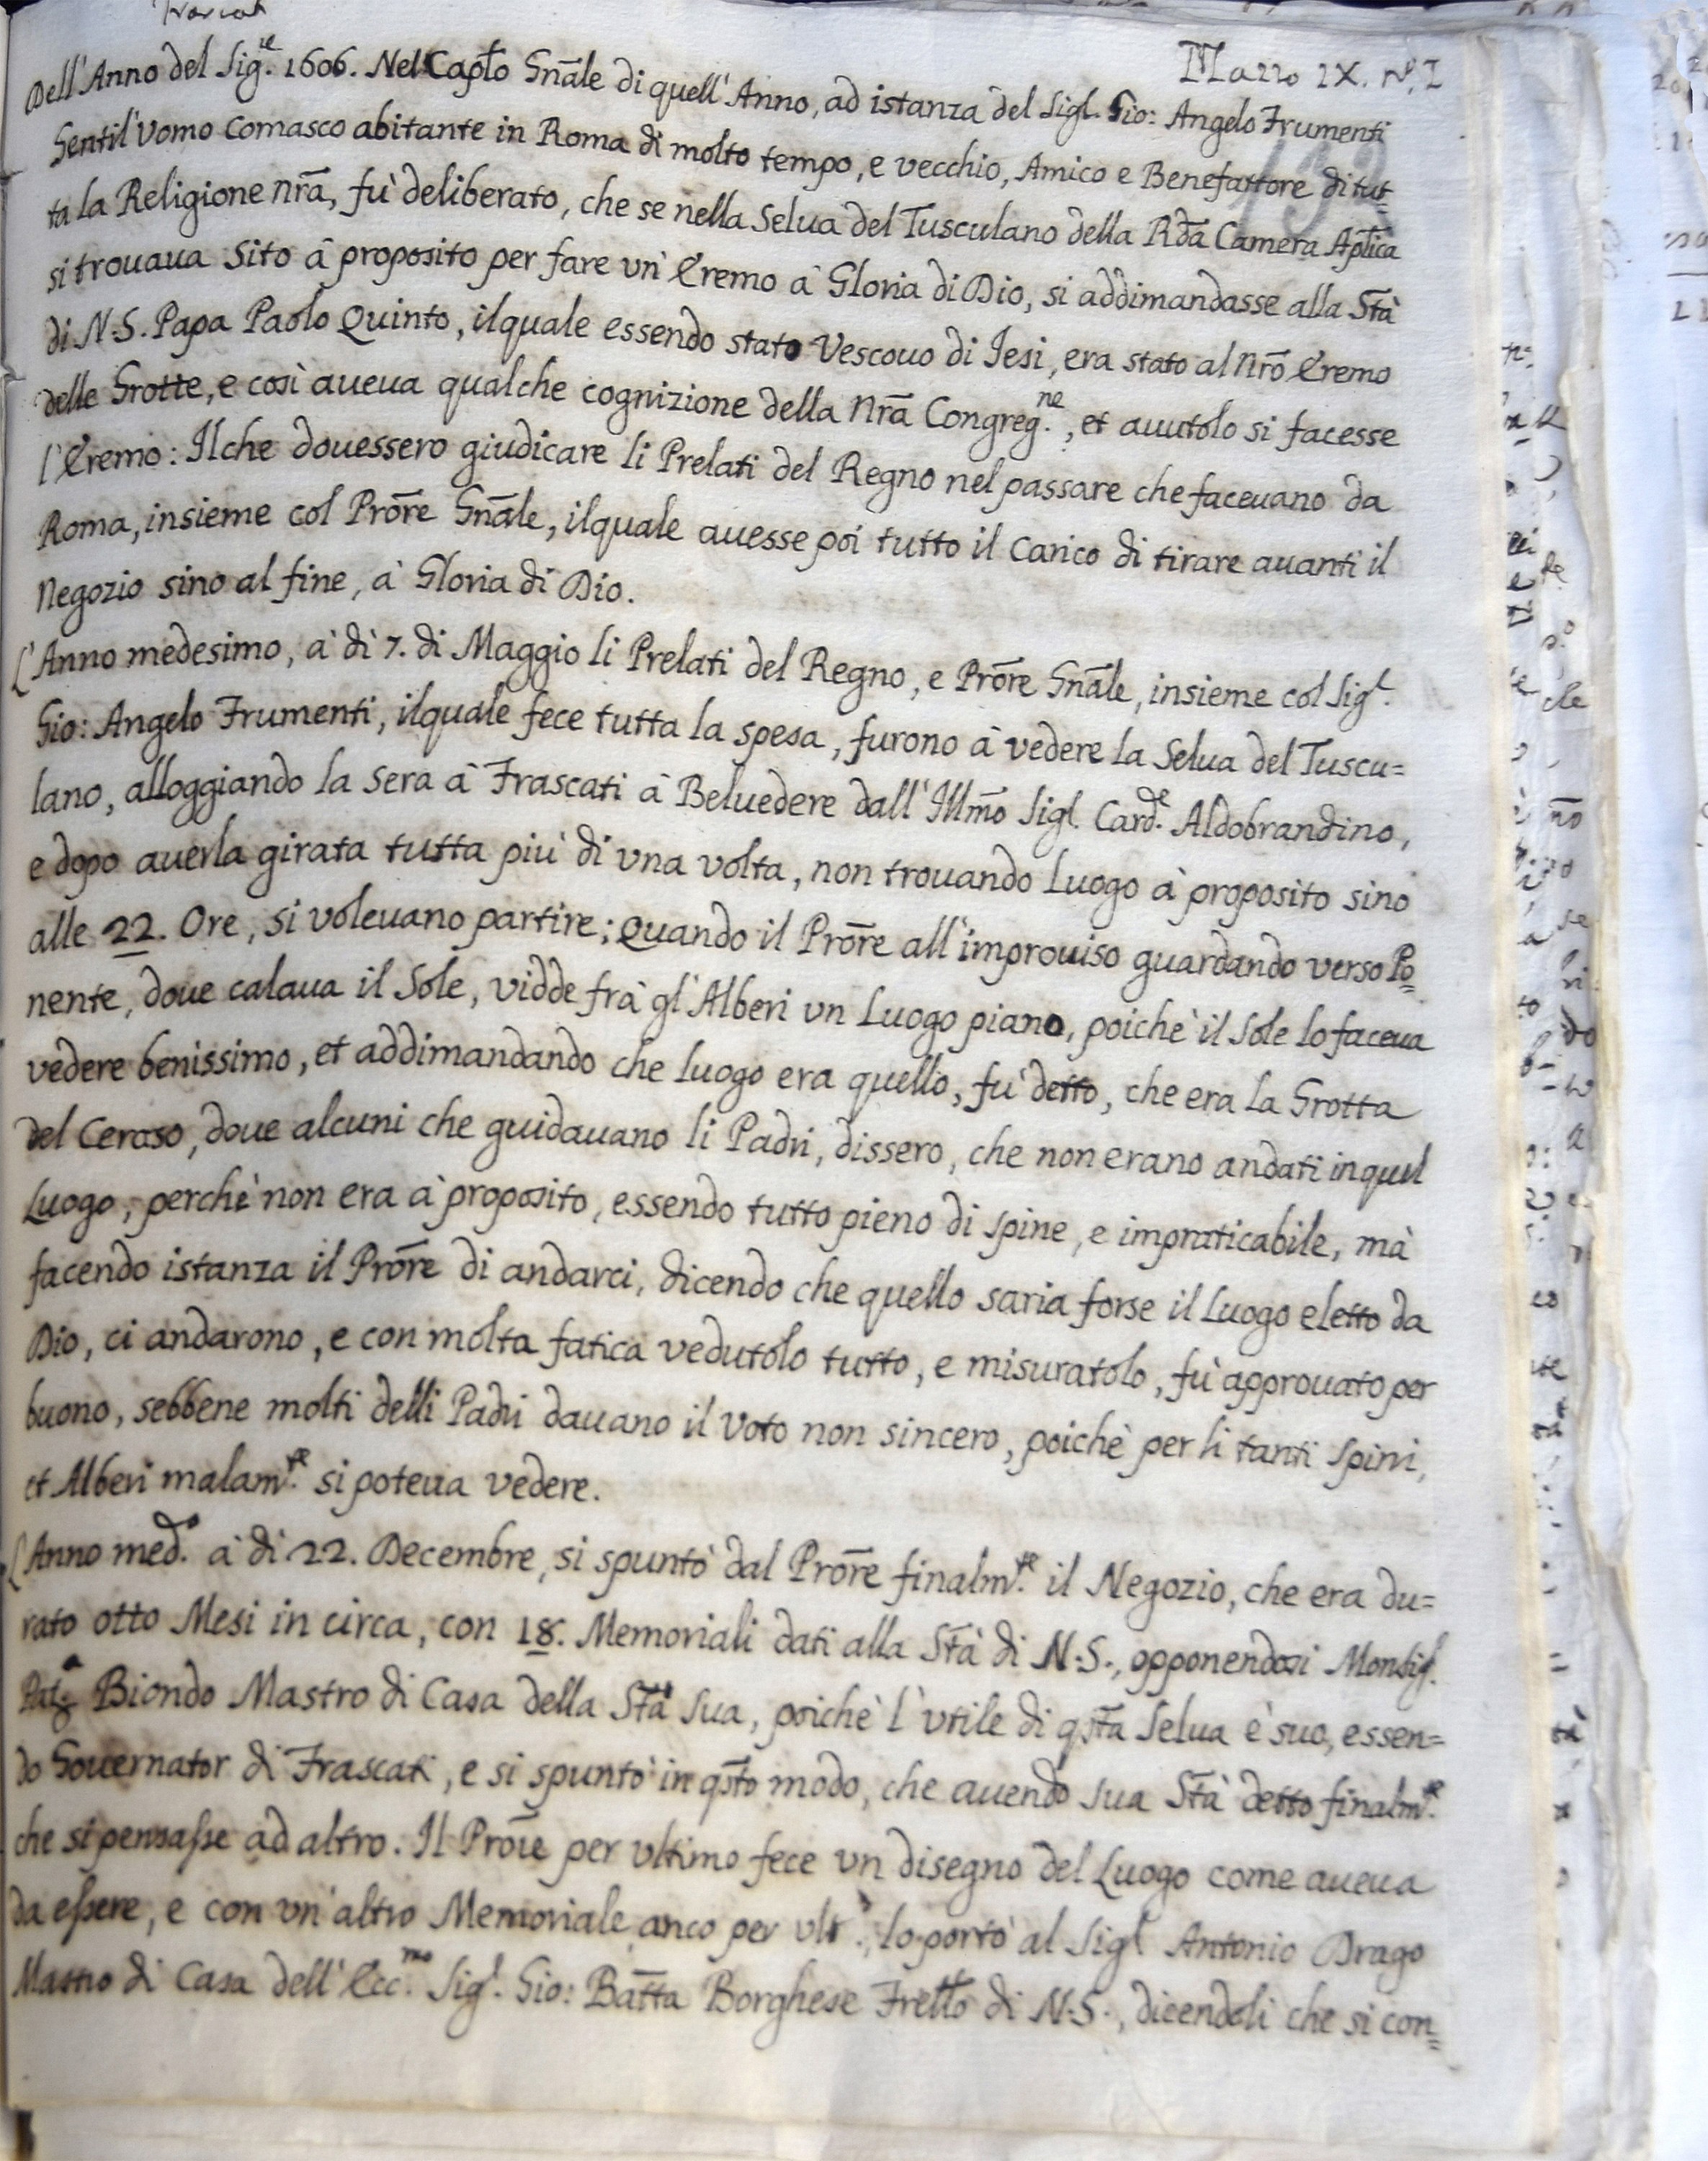 Frascati
Mazzo IX. N.º I
132
Dell'Anno del Sig.re 1606. Nel Capło Gnāle di quell'Anno, ad istanza del Sigł. Gio: Angelo Frumenti
Gentil'Uomo Comasco abitante in Roma di molto tempo, e vecchio, Amico e Benefattore di tut=
ta la Religione nrā, fù deliberato, che se nella Selua del Tusculano della Rdā Camera Aplīca
si trouaua Sito à proposito per fare vn' Eremo à Gloria di Dio, si addimandasse alla Stā
di N.S. Papa Paolo Quinto, ilquale essendo stato Vescouo di Iesi, era stato al nrō Eremo
delle Grotte, e così aueua qualche cognizione della nrā Congreg.ne, et auutolo si facesse
l'Eremo: Ilche douessero giudicare li Prelati del Regno nel passare che faceuano da
Roma, insieme col Prōre Gnāle, ilquale auesse poi tutto il Carico di tirare auanti il
Negozio sino al fine, à Gloria di Dio.
L'Anno medesimo, à dì 7. di Maggio li Prelati del Regno, e Prōre Gnāle, insieme col Sigł.
Gio: Angelo Frumenti, ilquale fece tutta la spesa, furono à vedere la Selua del Tuscu=
lano, alloggiando la sera à Frascati à Beluedere dall'Illmō Sigł. Card.le Aldobrandino,
e dopo auerla girata tutta più di vna volta, non trouando Luogo à proposito sino
alle 22. Ore, si voleuano partire; Quando il Prōre all'improuiso guardando verso Po=
nente, doue calaua il Sole, vidde frà gl'Alberi vn Luogo piano, poichè il Sole lo faceua
vedere benissimo, et addimandando che luogo era quello, fù detto, che era la Grotta
del Ceraso, doue alcuni che guidauano li Padri, dissero, che non erano andati in quel
Luogo, perchè non era à proposito, essendo tutto pieno di spine, e impraticabile, mà
facendo istanza il Prōre di andarci, dicendo che quello saria forse il Luogo eletto da
Dio, ci andarono, e con molta fatica vedutolo tutto, e misuratolo, fù approuato per
buono, sebbene molti delli Padri dauano il Voto non sincero, poichè per li tanti spini,
et Alberi malam.te si poteua vedere.
L'Anno med.o à dì 22. Decembre, si spuntò dal Prōre finalm.te il Negozio, che era du=
rato otto Mesi in circa, con 18. Memoriali dati alla Stā di N.S., opponendosi Monsigł.
Biondo Mastro di Casa della Stā Sua, poichè l'vtile di qstā Selua è suo, essen=
do Gouernator di Frascati, e si spuntò in qstō modo, che auendo sua Stà detto finalm.te
che si pensasse ad altro. Il Prōre per vltimo fece vn disegno del Luogo come aueua
da essere, e con vn'altro Memoriale anco per vlt.o, lo portò al Sigł Antonio Drago
Mastro di Casa dell'Ecc.mo Sigł. Gio: Battā Borghese Frełło di N.S., dicendoli che si con=